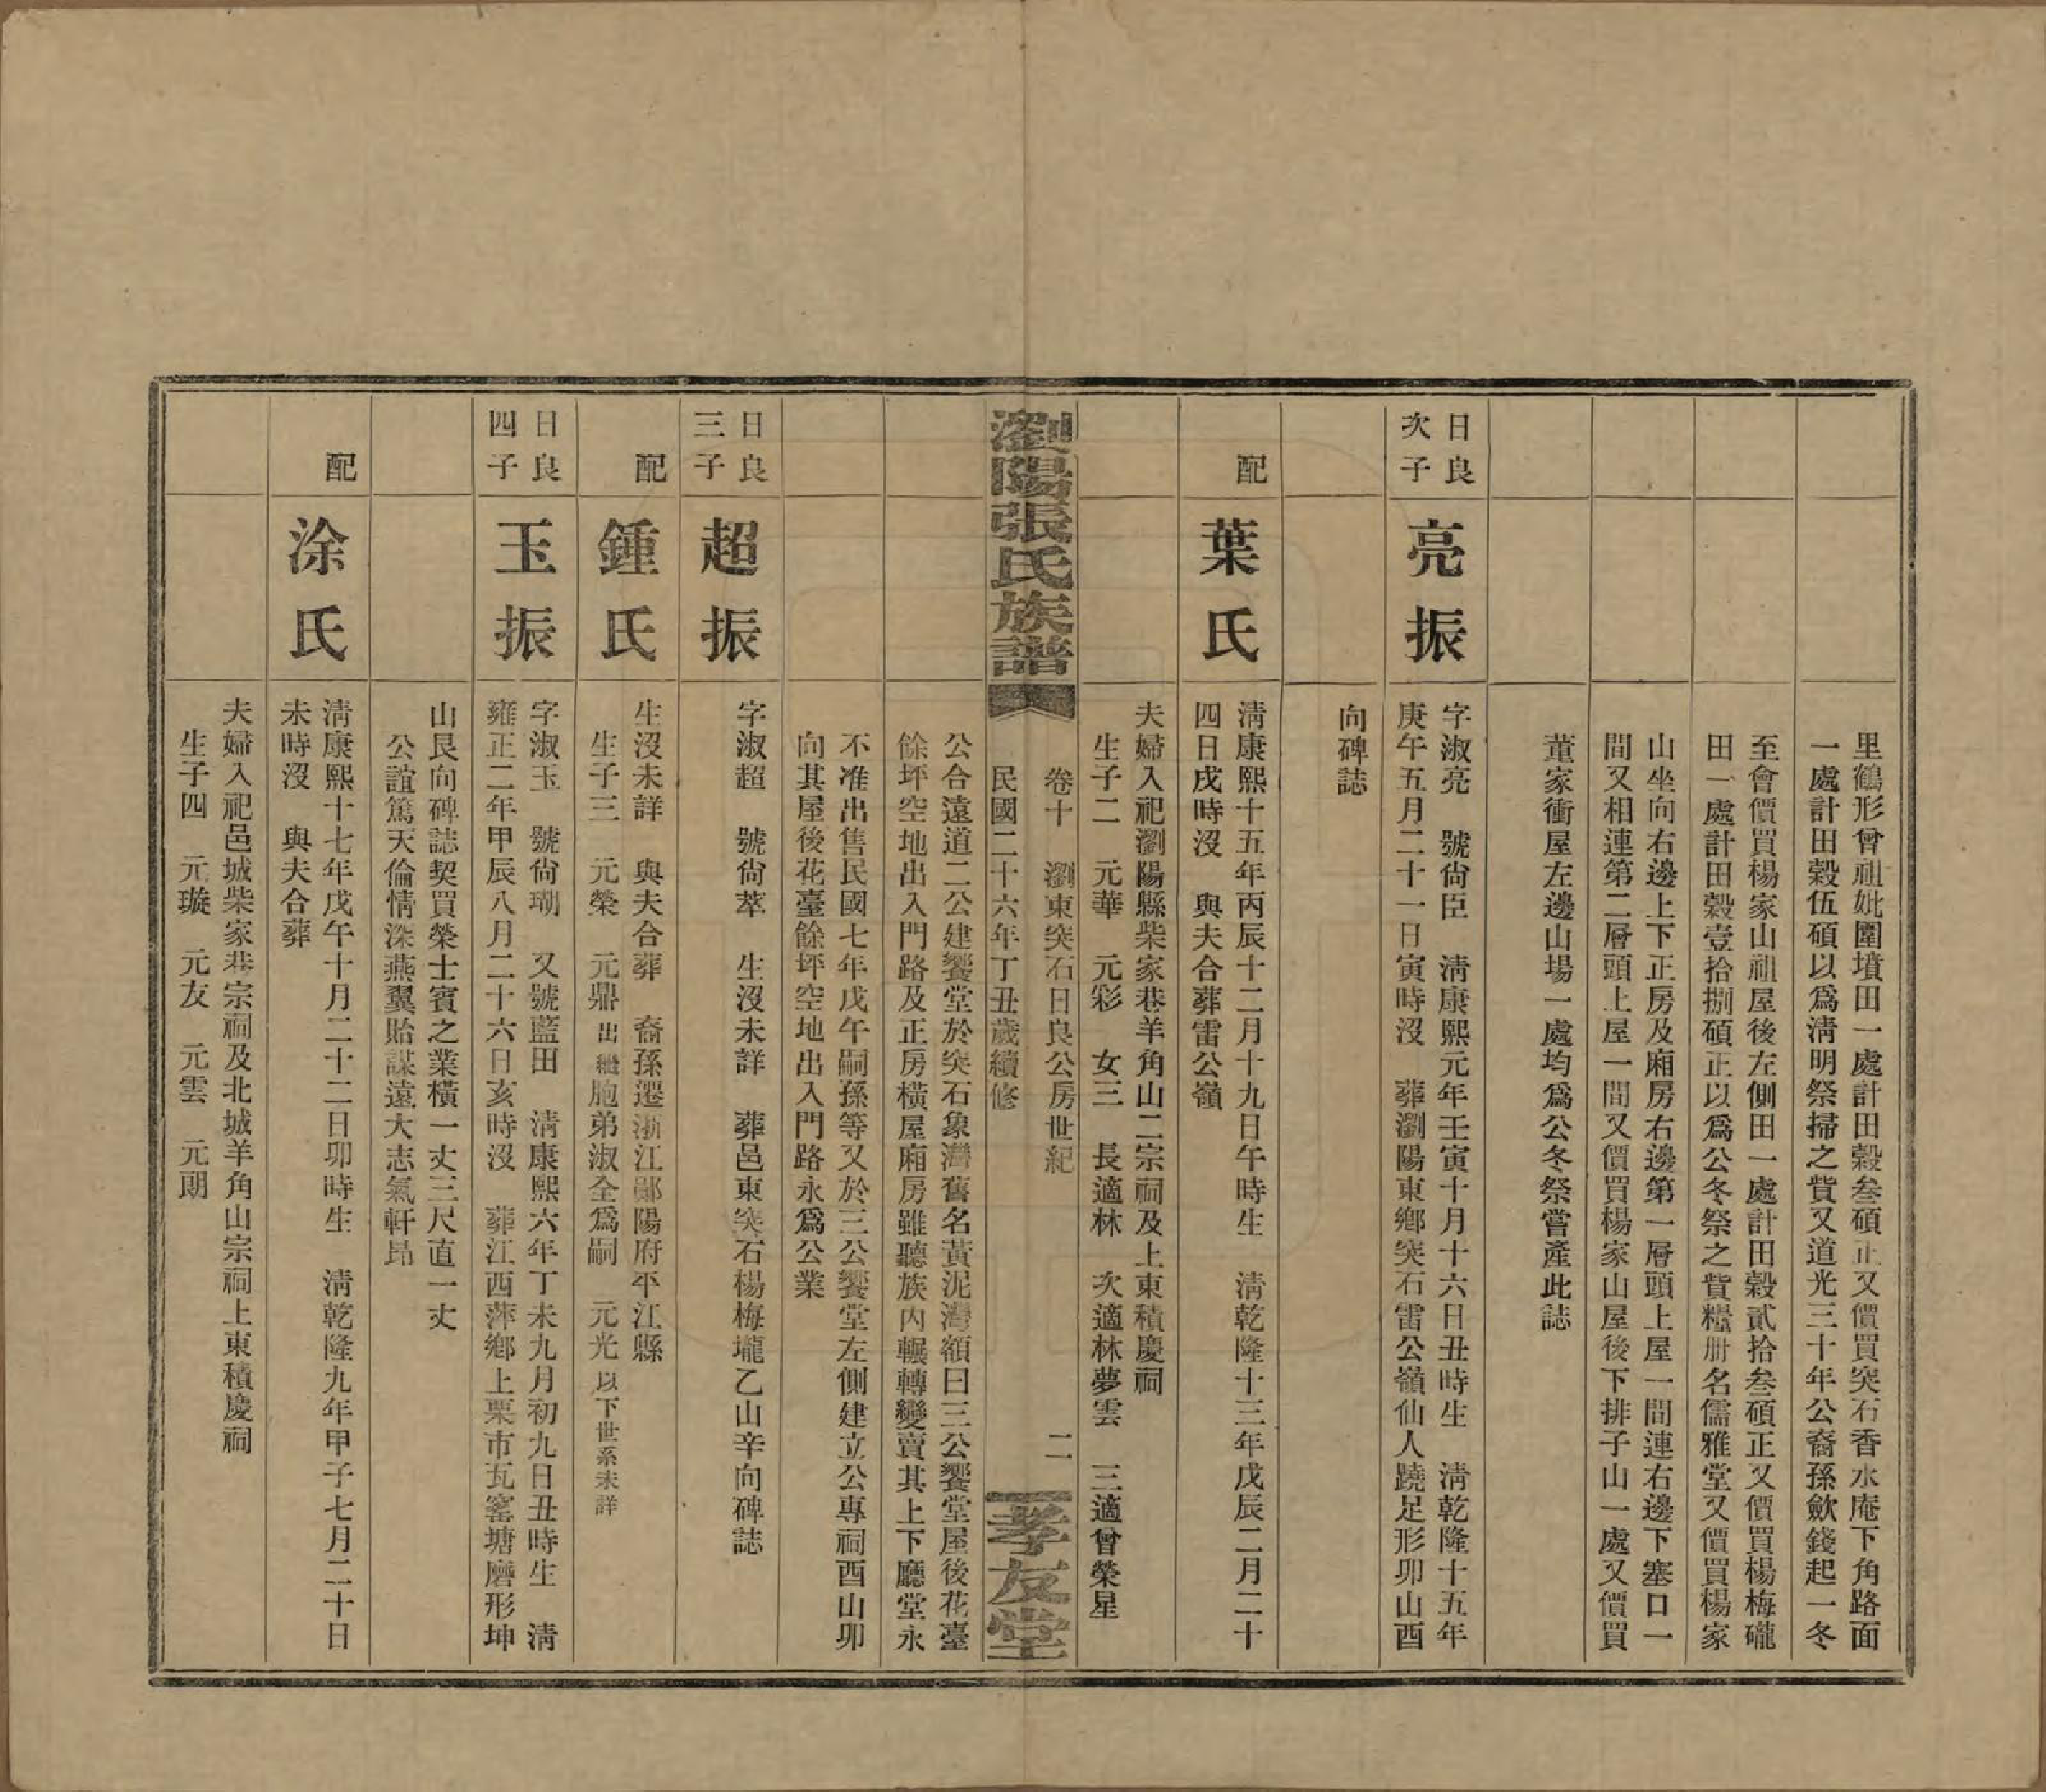 里鶴形曾祖妣圍墳田一處計田穀叁碩正又價買突石香水庵下角路面
一處計田穀伍碩以爲淸明祭掃之貲又道光三十年公裔孫歛錢起一冬
至會價買楊家山祖屋後左側田一處計田穀貳拾叁碩正又價買楊梅䃧
田一處計田穀壹拾捌碩正以爲公冬祭之貲糧册名儒雅堂又價買楊家
山坐向右邊上下正房及廂房右邊第一層頭上屋一間連右邊下塞口一
間又相連第二層頭上屋一間又價買楊家山屋後下排子山一處又價買
董家衝屋左邊山場一處均爲公冬祭嘗產此誌
日良
次子
亮振
字淑亮 號尙臣 淸康熙元年壬寅十月十六日丑時生 淸乾隆十五年
庚午五月二十一日寅時沒 葬瀏陽東鄕突石雷公嶺仙人蹺足形卯山酉
向碑誌
配
葉氏
淸康熙十五年丙辰十二月十九日午時生 淸乾隆十三年戊辰二月二十
四日戌時沒 與夫合葬雷公嶺
夫婦入祀瀏陽縣柴家巷羊角山二宗祠及上東積慶祠
生子二 元華 元彩 女三 長適林 次適林夢雲 三適曾榮星
瀏陽張氏族譜
卷十 瀏東突石日良公房世紀 二
民國二十六年丁丑歲續修
孝友堂
公合遠道二公建饗堂於突石象灣舊名黃泥灣額曰三公饗堂屋後花臺
餘坪空地出入門路及正房橫屋廂房雖聽族內輾轉變賣其上下廳堂永
不准出售民國七年戊午嗣孫等又於三公饗堂左側建立公專祠酉山卯
向其屋後花臺餘坪空地出入門路永爲公業
日良
三子
超振
字淑超 號尙萃 生沒未詳 葬邑東突石楊梅壠乙山辛向碑誌
配
鍾氏
生沒未詳 與夫合葬 裔孫遷浙江鄖陽府平江縣
生子三 元榮 元鼎出繼胞弟淑全爲嗣 元光以下世系未詳
日良
四子
玉振
字淑玉 號尙瑚 又號藍田 淸康熙六年丁未九月初九日丑時生 淸
雍正二年甲辰八月二十六日亥時沒 葬江西萍鄕上栗市瓦窰塘磨形坤
山艮向碑誌契買榮士賓之業橫一丈三尺直一丈
公誼篤天倫情深燕翼貽謀遠大志氣軒昂
配
涂氏
淸康熙十七年戊午十月二十二日卯時生 淸乾隆九年甲子七月二十日
未時沒 與夫合葬
夫婦入祀邑城柴家巷宗祠及北城羊角山宗祠上東積慶祠
生子四 元璇 元友 元雲 元朝